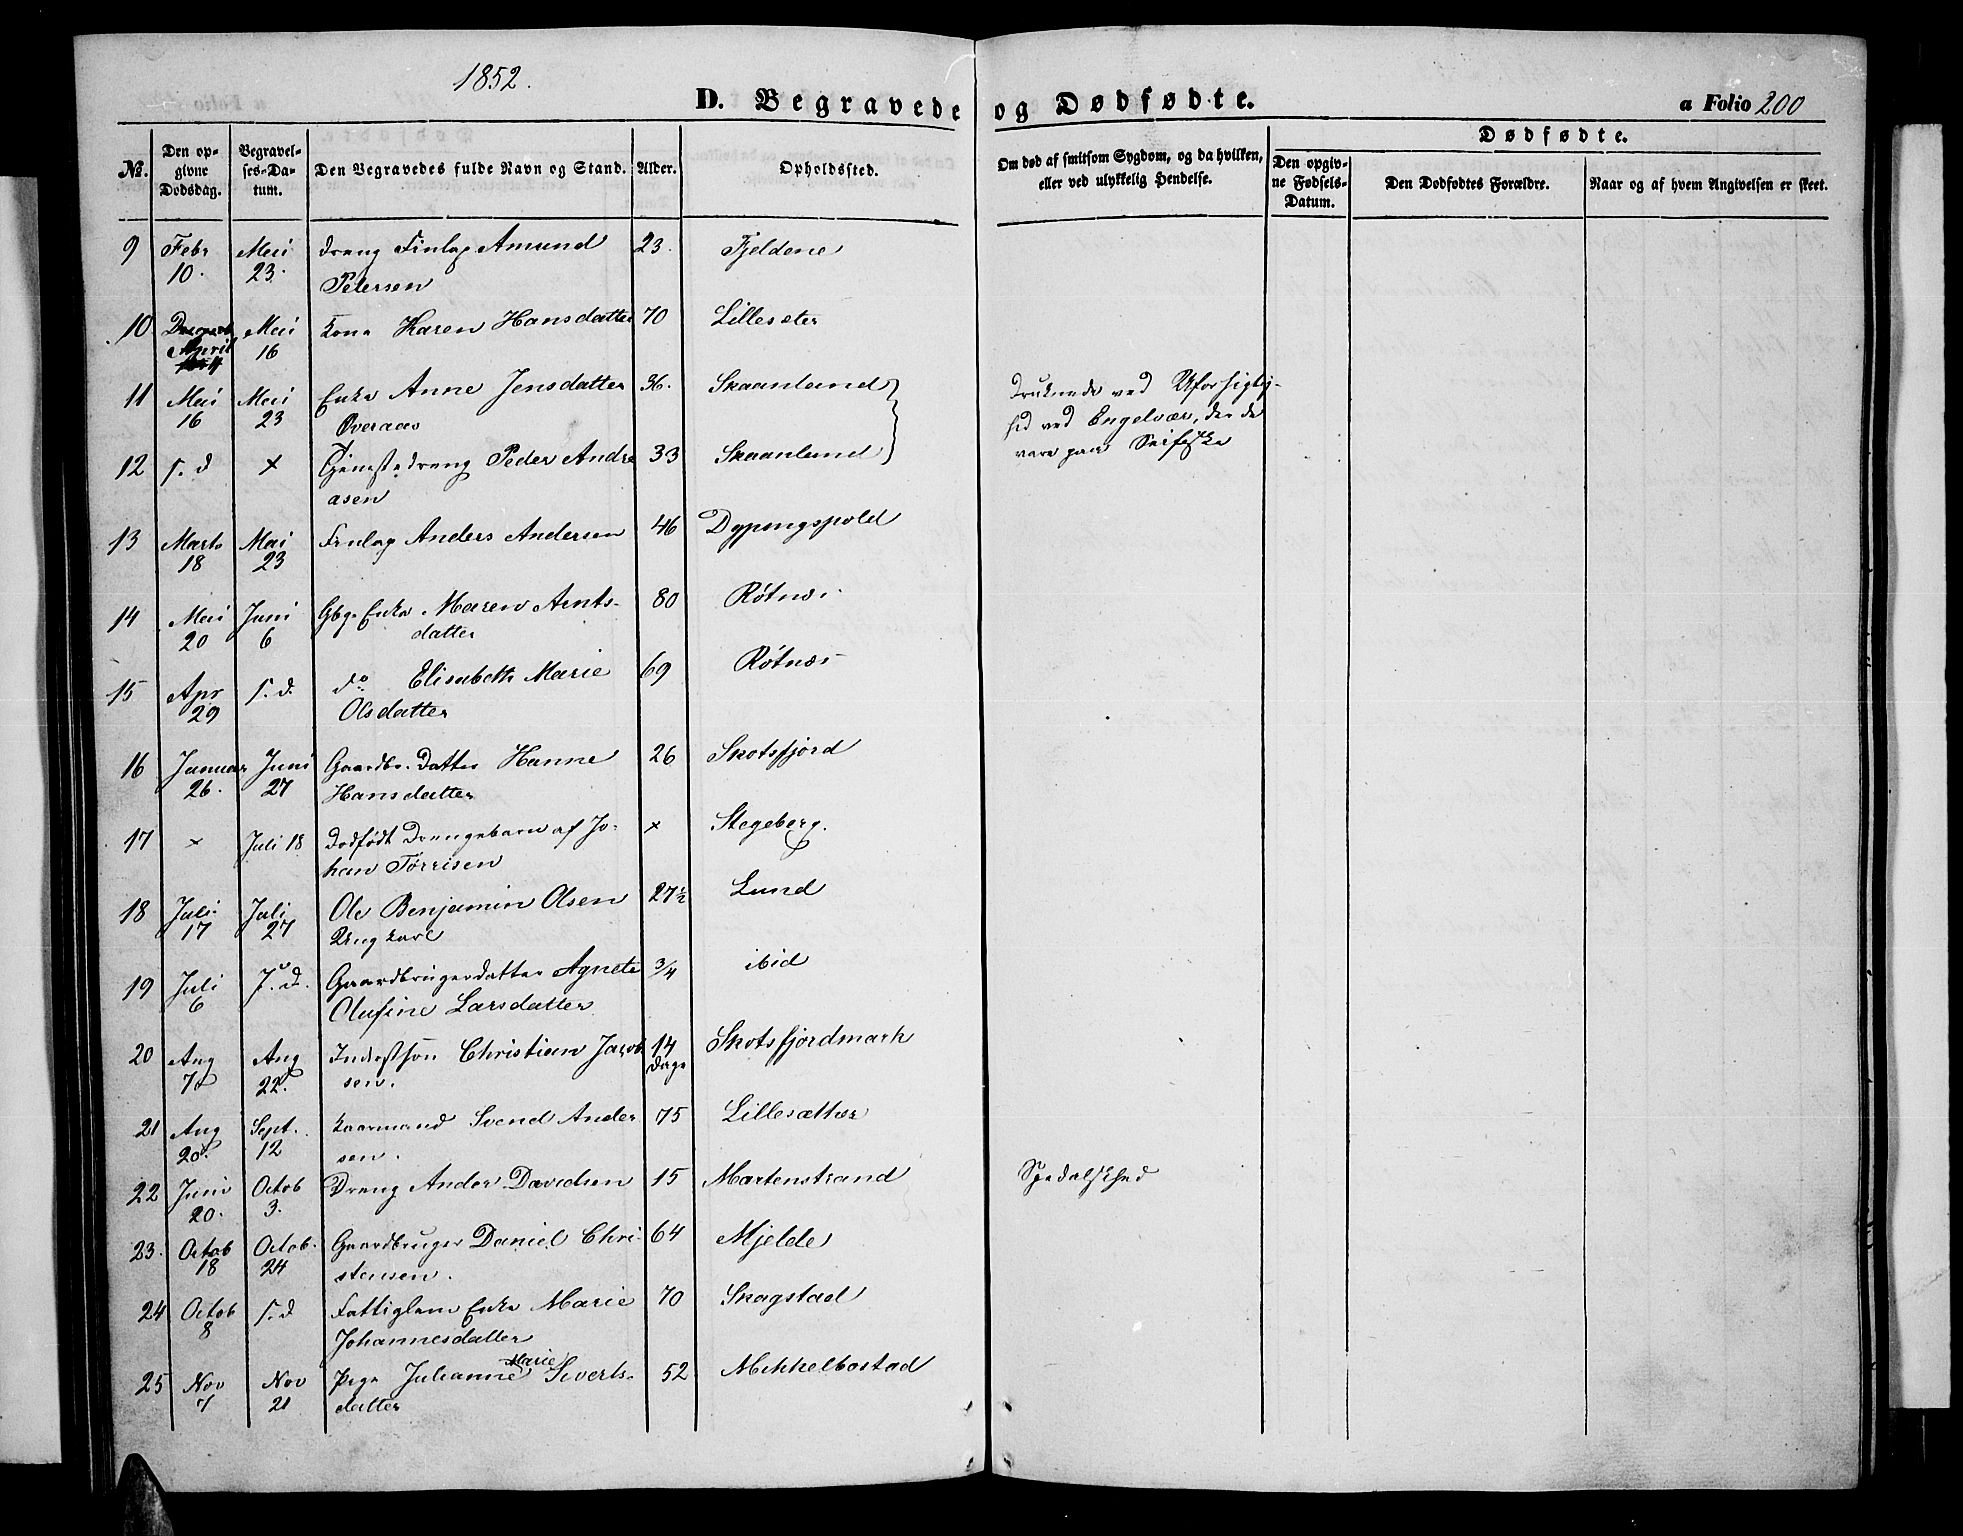 1852.
D. Begravede og Dødfødte.
a Folio 200
Dødfødte.
№. Den opgivne Dødsdag. Begravelses-Datum. Den Begravedes fulde Navn og Stand. Alder. Opholdssted. Om død af smitsom Sygdom, og da hvilken, eller ved ulykkelig Hendelse. Den opgivne Fødsels-Datum. Den Dødfødtes Forældre. Naar og af hvem Angivelsen er skeet.
9 Febr 10. Mai 23. Dreng Finlap Amund 23. Fjeldene
Petersen
10 April Mai 16 Kone Karen Hansdatter 70 Lillesæter
11 Mai 16 Mai 23 Enke Anne Jensdatter 36. Skaanland Druknede ved Uforsigtig-
Overaas hed ved Engelvær, der de
12 s. d x Tjenestedreng Peder Andre 33 Skaanland vare paa Seifiske
asen
13 Marts 18 Mai 23 Finlap Anders Andersen 46 Dypingspold
14 Mai 20 Juni 6 Gbgr Enke Maren Arnts- 80 Røtnæs
datter
15 Apr 29 s. d. do Elisabeth Marie 69 Røtnæs
Olsdatter
16 Januar 26. Juni 27 Gaardbr. Datter Hanne 26 Skotsfjord
Hansdatter
17 x Juli 18 Dødfødt Drengebarn af Jo- x Stegeberg.
han Tørrisen
18 Juli 17 Juli 27 Ole Benjamin Olsen 27½ Lund
Ungkarl
19 Juli 6 s. d. Gaardbrugerdatter Agnete 3/4 ibid
Olufine Larsdatter
20 Aug 7 Aug 22. Inderstsøn Christian Jacob 14 Dage Skotsfjordmark
sen.
21 Aug 20. Sept. 12 Kaarmand Svend Ander 75 Lillesætter
sen.
22 Juni 20. Octob 3. Dreng Ander Davidsen 15 Martenstrand Spedalskhed
23. Octob 18 Octob. 24 Gaardbruger Daniel Chri- 64 Mjelde
stensen.
24 Octob 8 s. d Fattiglem Enke Marie 70 Skagstad
Johannesdatter
25 Nov 7 Nov 21 Pige Julianne Marie Siverts- 52 Mikkelbostad
datter